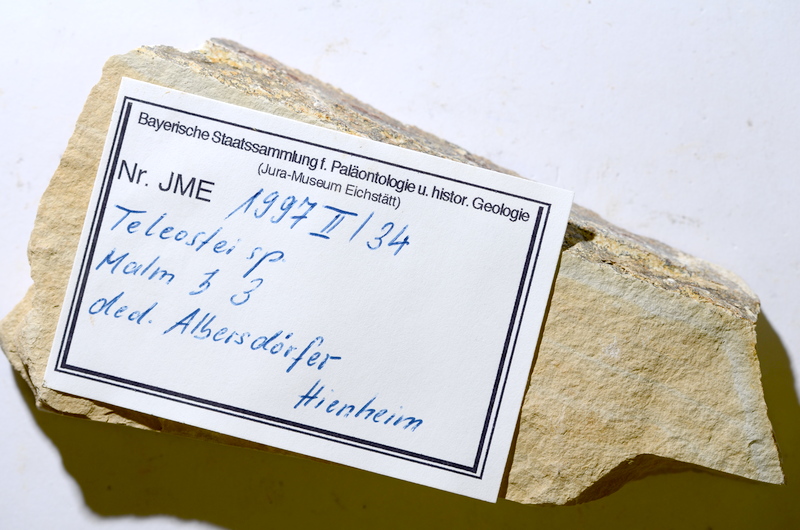 Bayerische Staatssammlung f. Paläontologie u. histor. Geologie
(Jura-Museum Eichstätt)
Nr. JME 1997 II / 34
Teleostei sp.
Malm ζ 3
ded. Albersdörfer
Hienheim